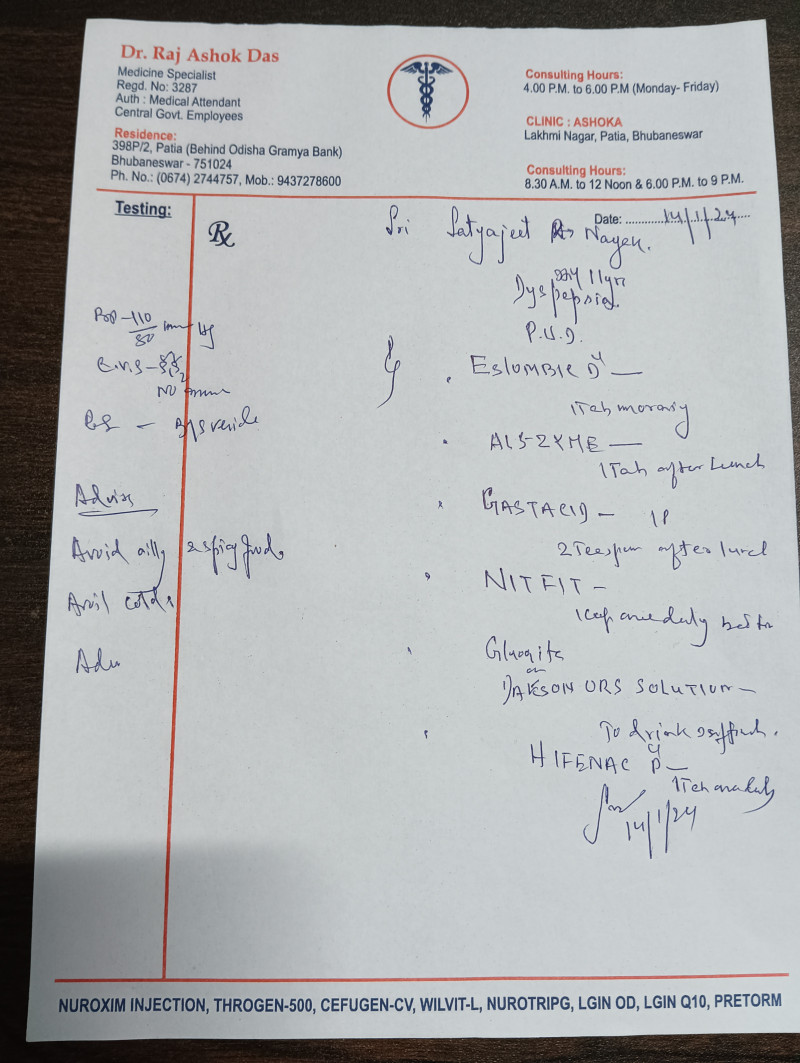 Dr. Raj Ashok Das
Medicine Specialist
Regd. No: 3287
Auth : Medical Attendant
Central Govt. Employees
Residence:
398P/2, Patia (Behind Odisha Gramya Bank)
Bhubaneswar - 751024
Ph. No.: (0674) 2744757, Mob.: 9437278600
Consulting Hours:
4.00 P.M. to 6.00 P.M (Monday- Friday)
CLINIC : ASHOKA
Lakhmi Nagar, Patia, Bhubaneswar
Consulting Hours:
8.30 A.M. to 12 Noon & 6.00 P.M. to 9 P.M.
Testing:
Rx
Date: 14/1/24
Sri Satyajeet Nayek.
Dyspepsia.
P.U.D.
110/80 mm Hg
C.V.S -
NO
ESLOMBIC D —
1 Tab
ALS-ZYME —
1 Tab after Lunch
GASTACID —
2 Teaspun after lunch
NITFIT —
1 cap daily
or
ORS SOLUTION —
To drink
HIFENAC P —
1 Tab
14/1/24
Advise
Avoid oily & spicy food
Avoid colds
Adv
NUROXIM INJECTION, THROGEN-500, CEFUGEN-CV, WILVIT-L, NUROTRIPG, LGIN OD, LGIN Q10, PRETORM